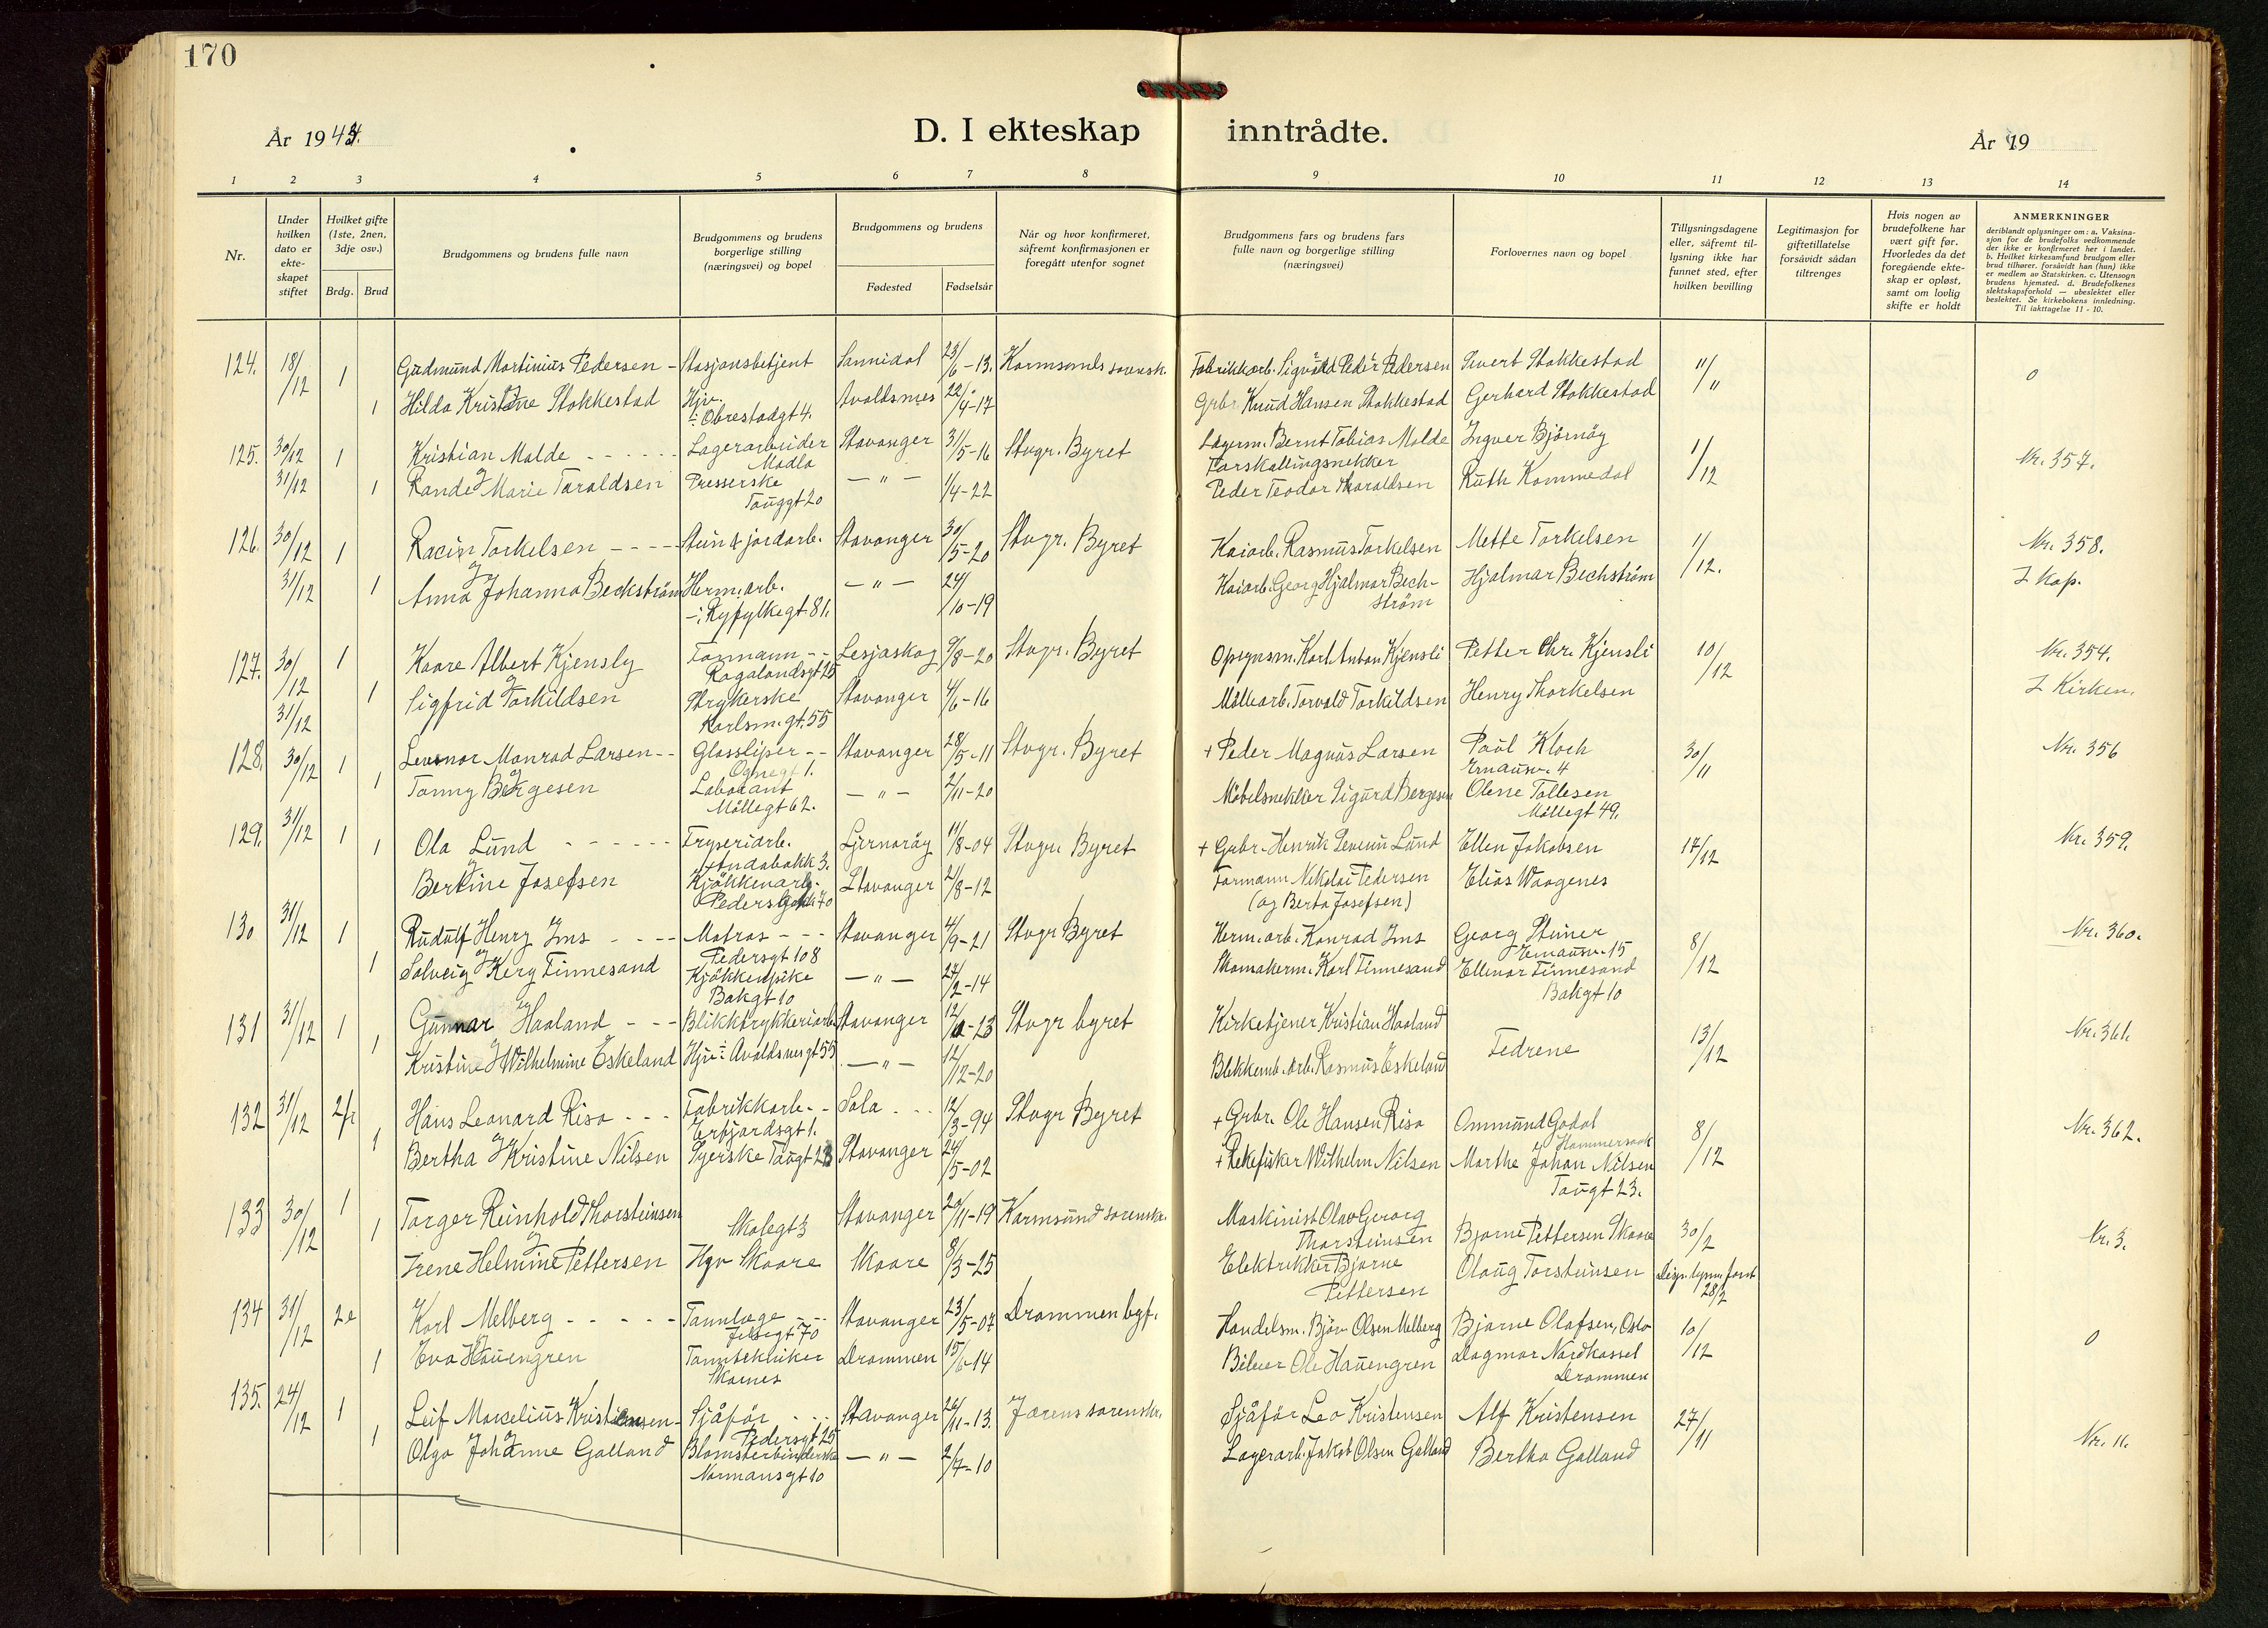 170
År 1944.
D. I ekteskap inntrådte.
År 19
1 2 3 4 5 6 7 8 9 10 11 12 13 14
Nr.
Under hvilken dato er ekte-skapet stiftet
Hvilket gifte (1ste, 2nen, 3dje osv.)
Brdg. Brud
Brudgommens og brudens fulle navn
Brudgommens og brudens borgerlige stilling (næringsvei) og bopel
Brudgommens og brudens
Fødested
Fødselsår
Når og hvor konfirmeret, såfremt konfirmasjonen er foregått utenfor sognet
Brudgommens fars og brudens fars fulle navn og borgerlige stilling (næringsvei)
Forlovernes navn og bopel
Tillysningsdagene eller, såfremt til-lysning ikke har funnet sted, efter hvilken bevilling
Legitimasjon for giftetillatelse forsåvidt sådan tiltrenges
Hvis nogen av brudefolkene har vært gift før. Hvorledes da det foregående ekte-skap er opløst, samt om lovlig skifte er holdt
ANMERKNINGER
deriblandt oplysninger om: a. Vaksina-sjon for de brudefolks vedkommende der ikke er konfirmeret her i landet. b. Hvilket kirkesamfund brudgom eller brud tilhører, forsåvidt han (hun) ikke er medlem av Statskirken. c. Utensogn brudens hjemsted. d. Brudefolkenes slektskapsforhold — ubeslektet eller beslektet. Se kirkebokens innledning. Til iakttagelse 11 - 10.
124. 18/12 1 Gudmund Martinius Pedersen - Stasjonsbetjent Sannidal 23/6-13. Karmsunds sorensk. Fabrikkarb. Sigvald Peder Pedersen Sivert Stokkestad 11/11 0
1 Hilda Kristine Stokkestad Hjv. Obrestadgt 4. Avaldsnes 22/4-17 Grbr. Knud Hansen Stokkestad Gerhard Stokkestad
125. 30/12 1 Kristian Malde - - - Lagerarbeider Madla Stavanger 31/5-16 Stvgr. Byret Lagerm. Bernt Tobias Malde Ingver Bjørnøy 1/12 Nr. 357.
31/12 1 Rande Marie Taraldsen Presserske Tauggt 20 - " - 1/4-22 Forskallingsnekker Peder Teodor Tharaldsen Ruth Kommedal
126. 30/12 1 Racin Torkelsen - - - Stein & jordarb. Stavanger 30/5-20 Stvgr. Byret Kaiarb. Rasmus Torkelsen Mette Torkelsen 1/12. Nr. 358.
31/12 1 Anna Johanna Beckstrøm Herm. arb. Ryfylkegt 81. - " - 24/10-19 Kaiarb. Georg Hjalmar Bech-strøm Hjalmar Bechstrøm I kap.
127. 30/12 1 Kaare Albert Kjensly Formann - - Rogalandsgt 25 Lesjaskog 9/8-20 Stvgr. Byret Opsynsm. Karl Anton Kjensli Petter Chr. Kjensli 10/12 Nr. 354.
31/12 1 Sigfrid Torkildsen Strykerske Karlsm.gt. 55 Stavanger 4/6-16 Møllearb. Torvald Torkildsen Henry Thorkelsen I Kirken.
128. 30/12 1 Levenor Monrad Larsen - - Glassliper - - Ognegt 1. Stavanger 28/5-11 Stvgr. Byret + Peder Magnus Larsen Paul Kloch Emausv. 4 30/11 Nr. 356
1 Tanny Bergesen Laborant Møllegt 62. - " - 2/11-20 Møbelsnekker Sigurd Bergesen Olene Tollesen Møllegt 49.
129. 31/12 1 Ola Lund - - - Fryseriarb. Sandabakk 3. Sjernarøy 11/8-04 Stvgr. Byret + Grbr. Henrik Severin Lund Ellen Jakobsen 17/12 Nr. 359.
1 Bertine Josefsen Kjøkkenarb. Pedersbakk 70 Stavanger 2/8-12 Formann Nikolai Pedersen (og Berta Josefsen) Elias Waagenes
130 31/12 1 Rudulf Henry Ims - - - Matros - - - Pedersgt 108 Stavanger 4/9-21 Stvgr Byret Herm. arb. Konrad Ims Georg Steiner Emausv. 15 8/12 Nr. 360.
1 Solveig Kerg Tinnesand Kjøkkenpike Bakgt 10 - " - 27/2-14 Skomakerm. Karl Tinnesand Ellinor Tinnesand Bakgt 10
131 31/12 1 Gunnar Haaland - - - Blikktrykkeriarb. Stavanger Stvgr byret Kirketjener Kristian Haaland Fedrene 13/12 Nr. 361.
1 Kristine Wilhelmine Eskeland Hjv. Avaldsnesgt 55 - " - 12/12-20 Blikkemb. Arb. Rasmus Eskeland
132 31/12 2 Hans Leonard Risa - - - Fabrikkarb. - Erfjordsgt 1. Sola 12/3-94 Stvgr Byret + Grbr. Ole Hansen Risa Ommund Godal Hammersak 8/12 Nr. 362.
1 Bertha Kristine Nilsen Syerske Taugt 23 Stavanger 24/5-02 + Rekefisker Wilhelm Nilsen Marthe Johan Nilsen Taugt 23.
133 30/12 1 Torger Reinhold Thorsteinsen Skolegt 3 Stavanger 20/11-19 Karmsund sorenskr. Maskinist Olav Georg Thorsteinsen Bjarne Pettersen Skaare 30/2 Nr. 3.
1 Irene Helmine Pettersen Hjv Skaare Skaare 8/3-25 Elektrikker Bjarne Pettersen Olaug Torsteinsen 28/2
134 31/12 2e Karl Melberg - - - Tannlæge Jelsegt 70 Stavanger 23/5-07 Drammen byf. Handelsm. Bjørn Olsen Melberg Bjarne Olafsen, Oslo 10/12 0
1 Eva Hauengren Tanntekniker Drammen 15/6-14 Ole Hauengren Dagmar Nordkassel Drammen
135. 24/12 1 Leif Marcelius Kristensen - Sjåfør - Pedersgt 25 Stavanger 26/11-13. Jærens sorenskr. Sjåfør Leo Kristensen Alf Kristensen 27/11 Nr. 11.
1 Olga Johanne Galland Blomsterbinderske Normansgt 10 - " - 2/7-10 Lagerarb. Jakob Olsen Galland Bertha Galland